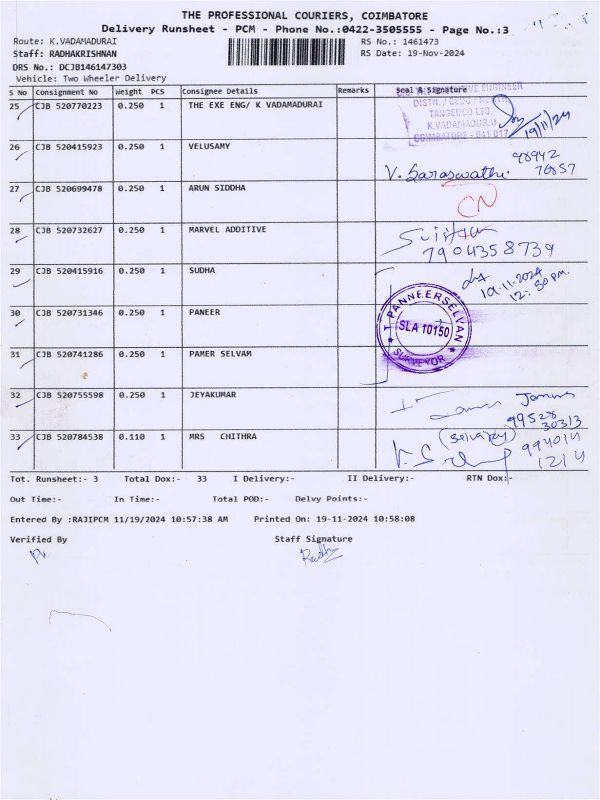 THE PROFESSIONAL COURIERS, COIMBATORE
Delivery Runsheet - PCM - Phone No.:0422-3505555 - Page No.:3
Route: K.VADAMADURAI RS No.: 1461473
Staff: RADHAKRISHNAN RS Date: 19-Nov-2024
DRS No.: DCJB146147303
Vehicle: Two Wheeler Delivery
S No Consignment No Weight PCS Consignee Details Remarks Seal & Signature
ENGINEER
25 CJB 520770223 0.250 1 THE EXE ENG/ K VADAMADURAI
TANGEDCO LTD
K.VADAMADURAI
COIMBATORE - 641 017
19/11/24
26 CJB 520415923 0.250 1 VELUSAMY
98942
76857
V. Saraswathi
27 CJB 520699478 0.250 1 ARUN SIDDHA
CN
28 CJB 520732627 0.250 1 MARVEL ADDITIVE
7904358739
29 CJB 520415916 0.250 1 SUDHA
19.11.2024
12:30 PM.
30 CJB 520731346 0.250 1 PANEER
T PANNEERSELVAN
SLA 10150
SURVEYOR
31 CJB 520741286 0.250 1 PAMER SELVAM
32 CJB 520755598 0.250 1 JEYAKUMAR
99528
30313
33 CJB 520784538 0.110 1 MRS CHITHRA
(Selvaraj)
994014
1214
Tot. Runsheet:- 3 Total Dox:- 33 I Delivery:- II Delivery:- RTN Dox:-
Out Time:- In Time:- Total POD:- Delvy Points:-
Entered By :RAJIPCM 11/19/2024 10:57:38 AM Printed On: 19-11-2024 10:58:08
Verified By Staff Signature
Radha